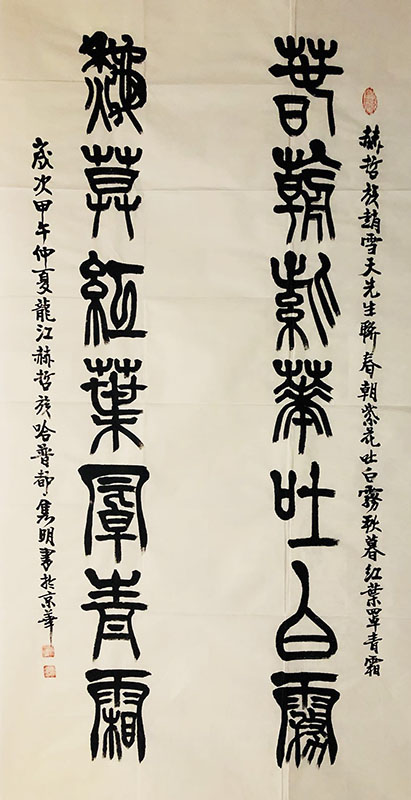 赫哲族趙雪天先生聯春朝紫花吐白霧秋暮紅葉罩青霜
春朝紫華吐白霧
秋莫紅葉罩青霜
歲次甲午仲夏龍江赫哲族哈普都隽明書於京華